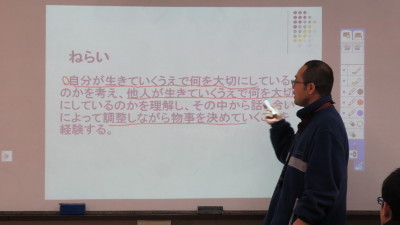 ねらい
○自分が生きていくうえで何を大切にしている
のかを考え、他人が生きていくうえで何を大切
にしているのかを理解し、その中から話し合い
によって調整しながら物事を決めていくことを
経験する。